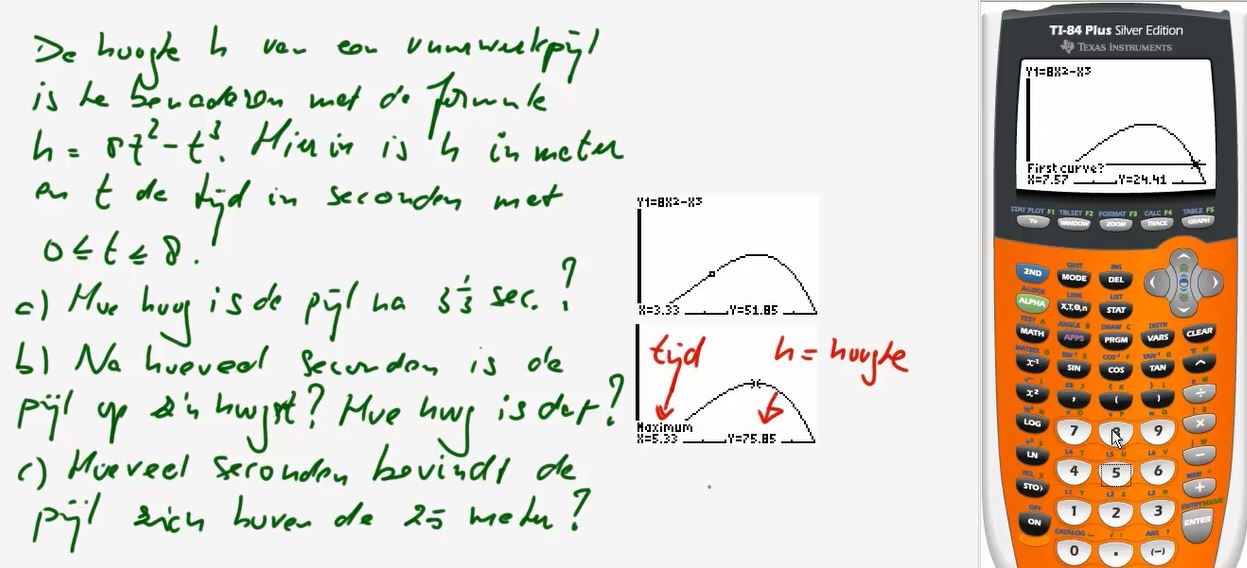 De hoogte h van een vuurwerkpijl
is te benaderen met de formule
h = 8t² - t³. Hierin is h in meter
en t de tijd in seconden met
0 ≤ t ≤ 8.
a) Hoe hoog is de pijl na 3 1/3 sec.?
b) Na hoeveel seconden is de
pijl op z'n hoogst? Hoe hoog is dat?
c) Hoeveel seconden bevindt de
pijl zich boven de 25 meter?
Y1=8X2-X3
X=3.33 Y=51.85
tijd h = hoogte
Maximum
X=5.33 Y=75.85
TI-84 Plus Silver Edition
TEXAS INSTRUMENTS
Y1=8X2-X3
First curve?
X=7.57 Y=24.41
STAT PLOT F1 TBLSET F2 FORMAT F3 CALC F4 TABLE F5
Y= WINDOW ZOOM TRACE GRAPH
QUIT INS
2ND MODE DEL
A-LOCK LINK LIST
ALPHA X,T,θ,n STAT
TEST A ANGLE B DRAW C DISTR
MATH APPS PRGM VARS CLEAR
MATRIX D SIN⁻¹ E COS⁻¹ F TAN⁻¹ G π H
x⁻¹ SIN COS TAN ^
√ I EE J { K } L e M
x² , ( ) ÷
LOG 7 8 9 ×
LN 4 5 6 −
STO› 1 2 3 +
ON 0 . (−) ENTER